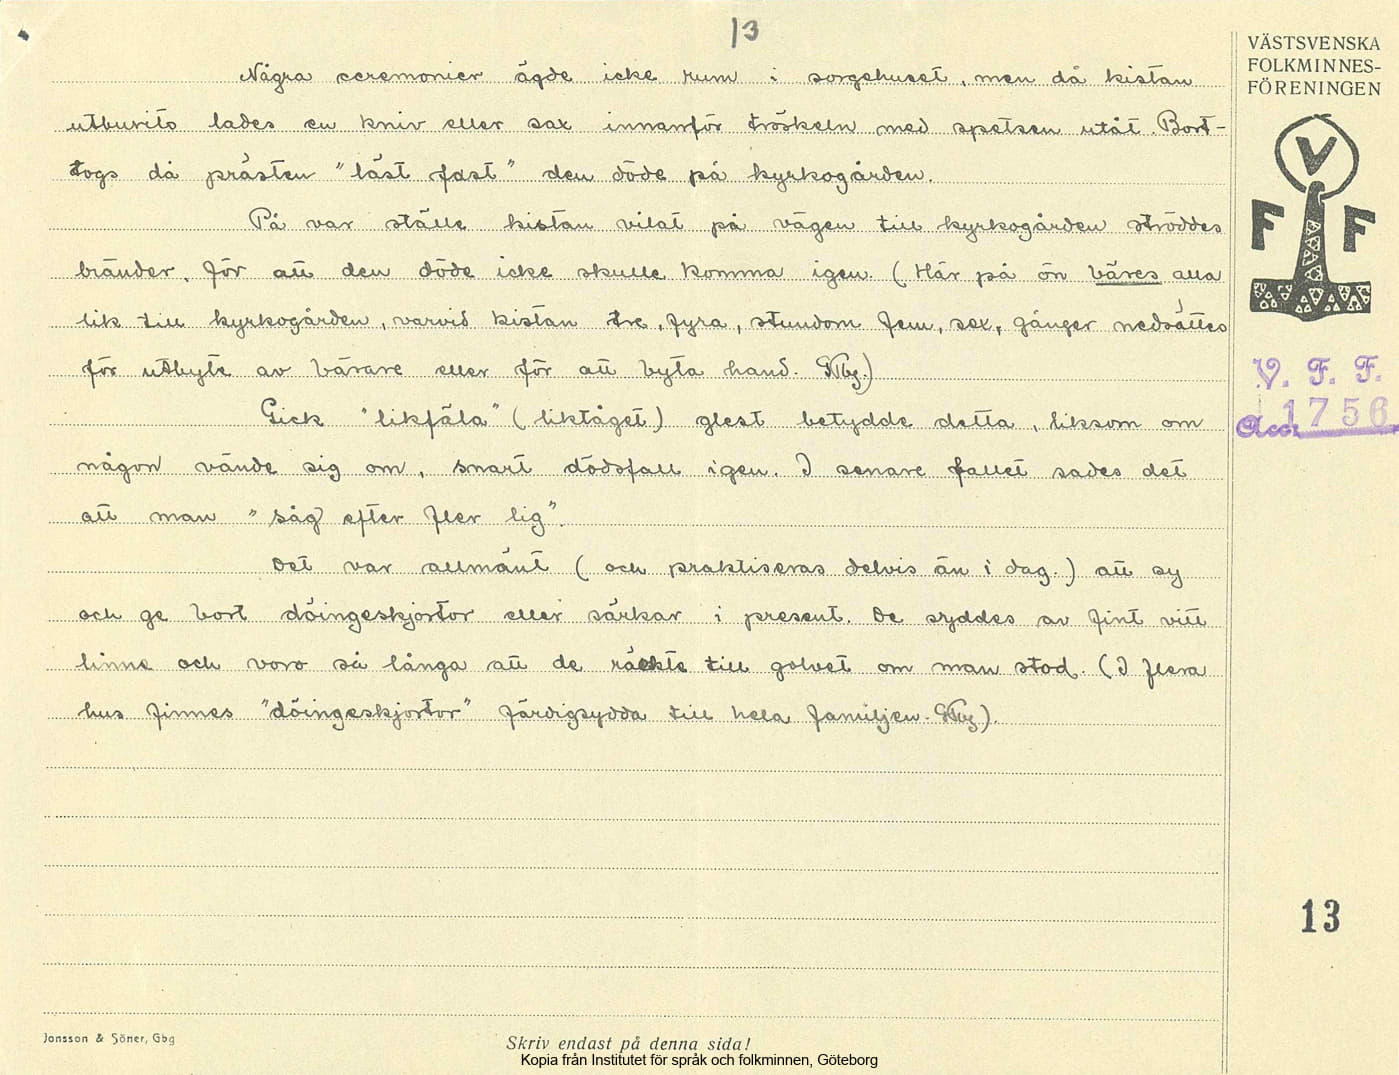 13
VÄSTSVENSKA
FOLKMINNES-
FÖRENINGEN
Några ceremonier ägde icke rum i sorgehuset, men då kistan
utburits lades en kniv eller sax innanför tröskeln med spetsen utåt. Bort-
togs då prästen "läst fast" den döde på kyrkogården.
På var ställe kistan vilat på vägen till kyrkogården ströddes
bränder, för att den döde icke skulle komma igen. (Här på ön bäres alla
lik till kyrkogården, varvid kistan tre, fyra, stundom fem, sex, gånger nedsättes
för utbyte av bärare eller för att byta hand.
Gick "likfäla" (liktåget) glest betydde detta, liksom om
någon vände sig om, snart dödsfall igen. I senare fallet sades det
att man "såg efter fler lig".
Det var allmänt (och praktiseras delvis än i dag.) att sy
och ge bort döingeskjortor eller särkar i present. De syddes av fint vitt
linne och voro så långa att de räckte till golvet om man stod. (I flera
hus finnes "döingeskjortor" färdigsydda till hela familjen.
V
F F
V. F. F.
Acc. 1756
13
Jonsson & Söner, Gbg
Skriv endast på denna sida!
Kopia från Institutet för språk och folkminnen, Göteborg